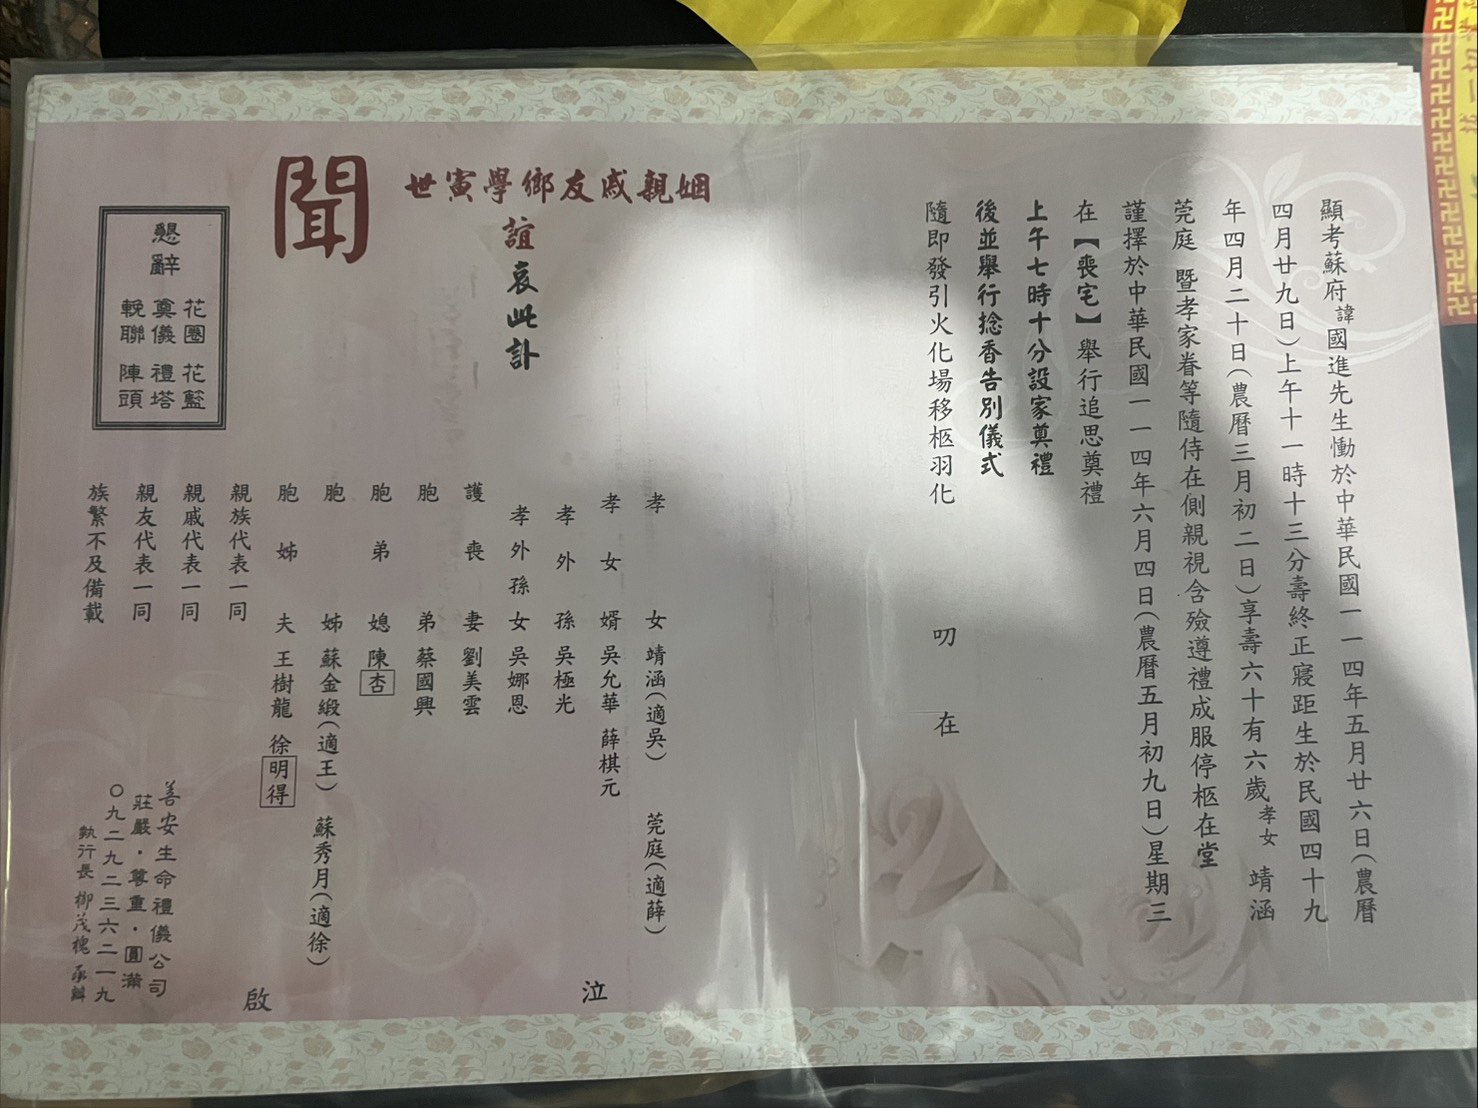 顯考蘇府諱國進先生慟於中華民國一一四年五月廿六日(農曆
四月廿九日)上午十一時十三分壽終正寢距生於民國四十九
年四月二十日(農曆三月初二日)享壽六十有六歲孝女 靖涵
莞庭 暨孝家眷等隨侍在側親視含殮遵禮成服停柩在堂
謹擇於中華民國一一四年六月四日(農曆五月初九日)星期三
在【喪宅】舉行追思奠禮
上午七時十分設家奠禮
後並舉行捻香告別儀式
隨即發引火化場移柩羽化
叨 在
世寅學鄉友戚親姻
誼 哀此訃
聞
孝 女 靖涵(適吳) 莞庭(適薛)
孝 女 婿 吳允華 薛棋元
孝 外 孫 吳極光
孝 外 孫 女 吳娜恩
護 喪 妻 劉美雲
胞 弟 蔡國興
胞 弟 媳 陳杏
胞 姊 蘇金緞(適王) 蘇秀月(適徐)
胞 姊 夫 王樹龍 徐明得
親族代表一同
親戚代表一同
親友代表一同
族繁不及備載
泣
啟
懇辭
花圈 花籃
奠儀 禮塔
輓聯 陣頭
善安生命禮儀公司
莊嚴．尊重．圓滿
〇九二九二三六二一九
執行長 柳茂槐 承辦